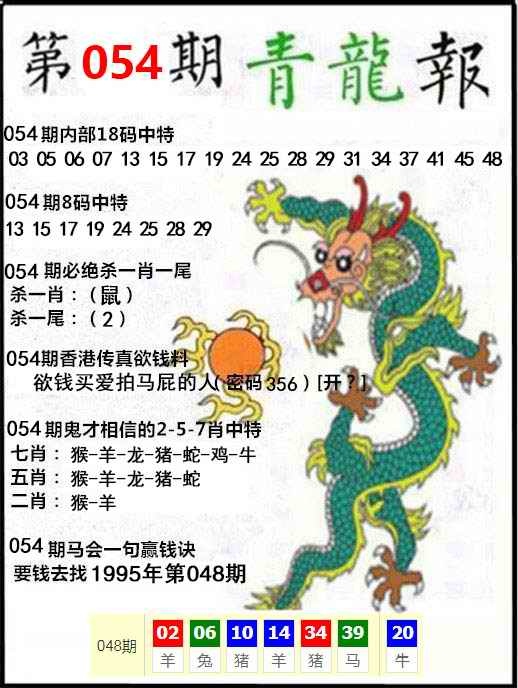 第054期青龍報
054期内部18码中特
03 05 06 07 13 15 17 19 24 25 28 29 31 34 37 41 45 48
054期8码中特
13 15 17 19 24 25 28 29
054 期必绝杀一肖一尾
杀一肖：（鼠）
杀一尾：（2）
054期香港传真欲钱料
欲钱买爱拍马屁的人（密码356）[开？]
054期鬼才相信的2-5-7肖中特
七肖：猴-羊-龙-猪-蛇-鸡-牛
五肖：猴-羊-龙-猪-蛇
二肖：猴-羊
054期马会一句赢钱诀
要钱去找1995年第048期
048期 02 06 10 14 34 39 20
羊 兔 猪 羊 猪 马 牛